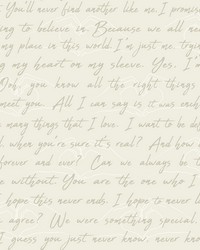 You'll never find another like me. I promise
ing to believe in. Because we all nee
my place in this world. I'm just me, tryin
g my heart on my sleeve. Yes, I'm
Ooh, you know all the right things
meet you. All I can say is it was ench
many things that I love. I want to be de
when you're sure it's real? And how
forever and ever? Can we always be t
e without. You are the one who I
hope this never ends. I hope to never l
agree? We were something special.
I guess you just never know, never know